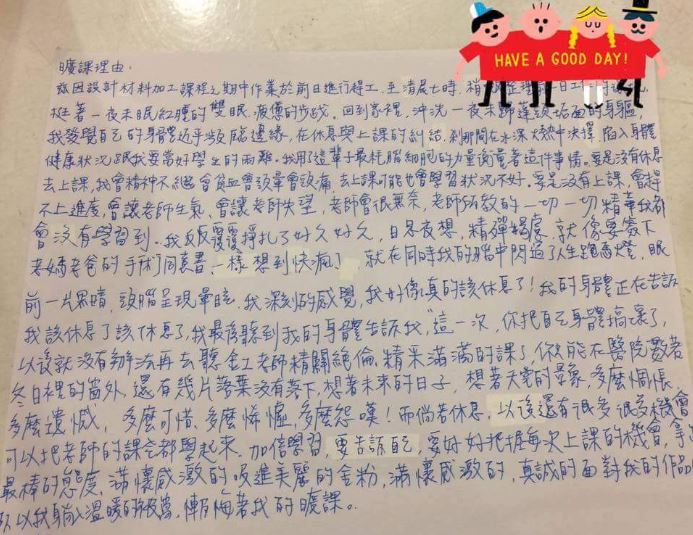 HAVE A GOOD DAY!
曠課理由:
茲因設計材料加工課程之期中作業於前日進行趕工,至清晨七時,稍
挺著一夜未眠紅腫的雙眼,疲憊的步伐,回到家裡,沖洗一夜未歸蓬頭垢面的身軀,
我發覺自己的身體近乎瀕臨邊緣,在休息與上課的糾結,剎那間在水深火熱中決擇,陷入身體
健康狀況跟我要當好學生的兩難。我用了這輩子最耗腦細胞的力量衡量著這件事情。要是沒有休息
去上課,我會精神不繼會貧血會頭暈會頭痛,去上課可能也會學習狀況不好。要是沒有上課,會趕
不上進度,會讓老師生氣,會讓老師失望,老師會很無奈,老師所教的一切一切精華我都
會沒有學習到。我反反覆覆掙扎了好久好久,日思夜想,精殫竭慮,就像要簽下
老媽老爸的手術同意書一樣想到快瘋了,就在同時我的腦中閃過了人生跑馬燈,眼
前一片黑暗,頭腦呈現暈眩,我深刻的感覺,我好像真的該休息了!我的身體正在告訴
我該休息了該休息了,我最後聽到我的身體告訴我,"這一次,你把自己身體搞壞了,
以後就沒有辦法再去聽金工老師精闢絕倫,精采滿滿的課了,你只能在醫院數著
冬日裡的窗外,還有幾片落葉沒有落下,想著未來的日子,想著天堂的景象,多麼惆悵,
多麼遺憾,多麼可惜,多麼悕惶,多麼怨嘆!而倘若休息,以後還有很多很多機會
可以把老師的課全都學起來。加倍學習,要告訴自己,要好好把握每次上課的機會,拿出
最棒的態度,滿懷感激的吸進美麗的金粉,滿懷感激的,真誠的面對我的作品
所以我躺入溫暖的被窩,懺悔著我的曠課。